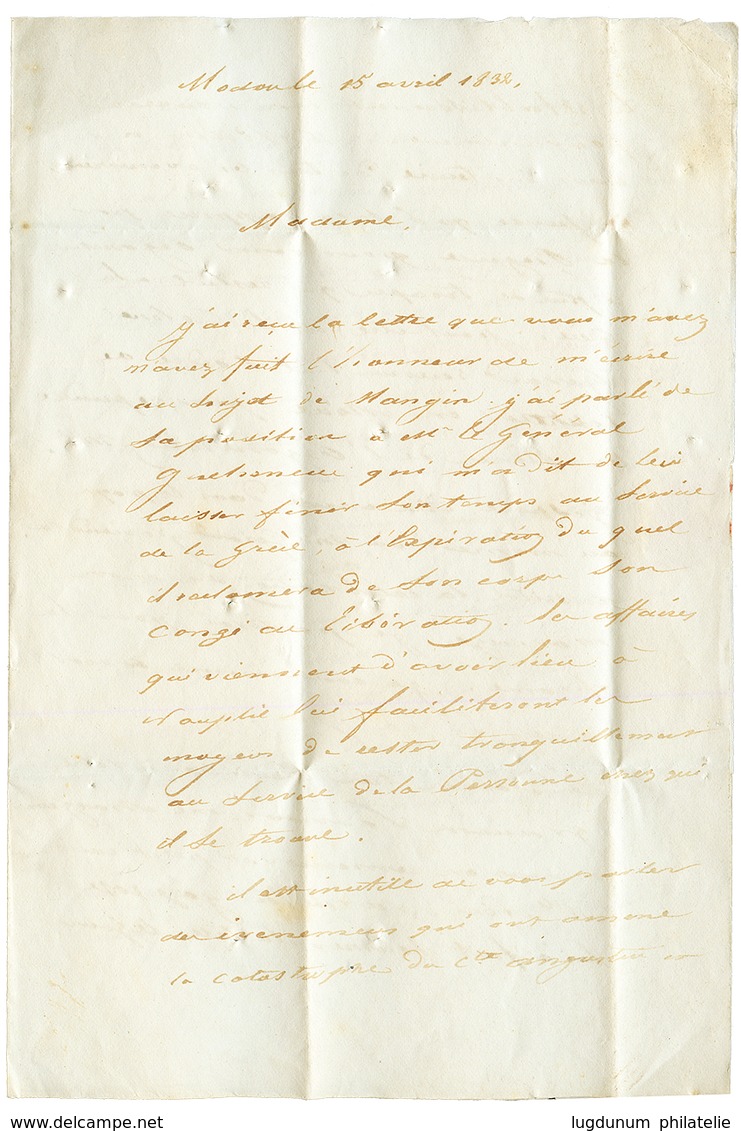 Modon le 15 avril 1832,
Madame,
j'ai reçu la lettre que vous m'avez
m'avez fait l'honneur de m'écrire
au sujet de Mangin. j'ai parlé de
sa position à Mr le Général
Gueheneuc qui m'a dit de lui
laisser finir son temps au service
de la Grèce, à l'Expiration du quel
il reclamera de son corps son
congé de libération. les affaires
qui viennent d'avoir lieu à
Nauplie lui faciliteront les
moyens de rester tranquillement
au service de la Personne chez qui
il se trouve.
il est inutile de vous parler
des évenemens qui ont amené
la catastrophe du Cte augustin
delcampe.net
lugdunum philatelie